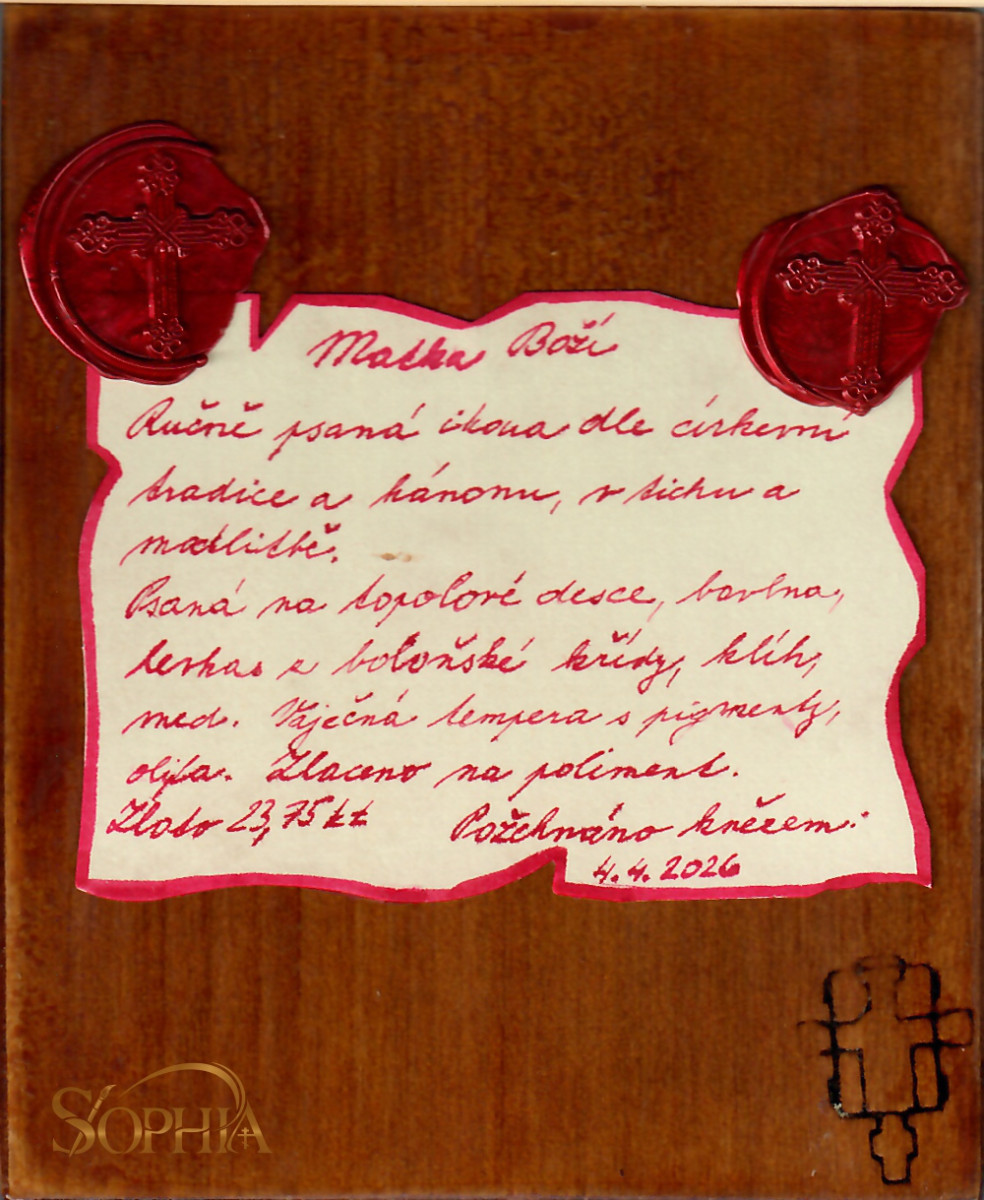 Matka Boží
Ručně psaná ikona dle církevní
tradice a kánonu, v tichu a
modlitbě.
Psaná na topolové desce, bavlna,
levkas z boloňské křídy, klih,
med. Vaječná tempera s pigmenty,
olifa. Zlaceno na poliment.
Zlato 23,75 kt Požehnáno knězem.
4.4.2026
SOPHIA